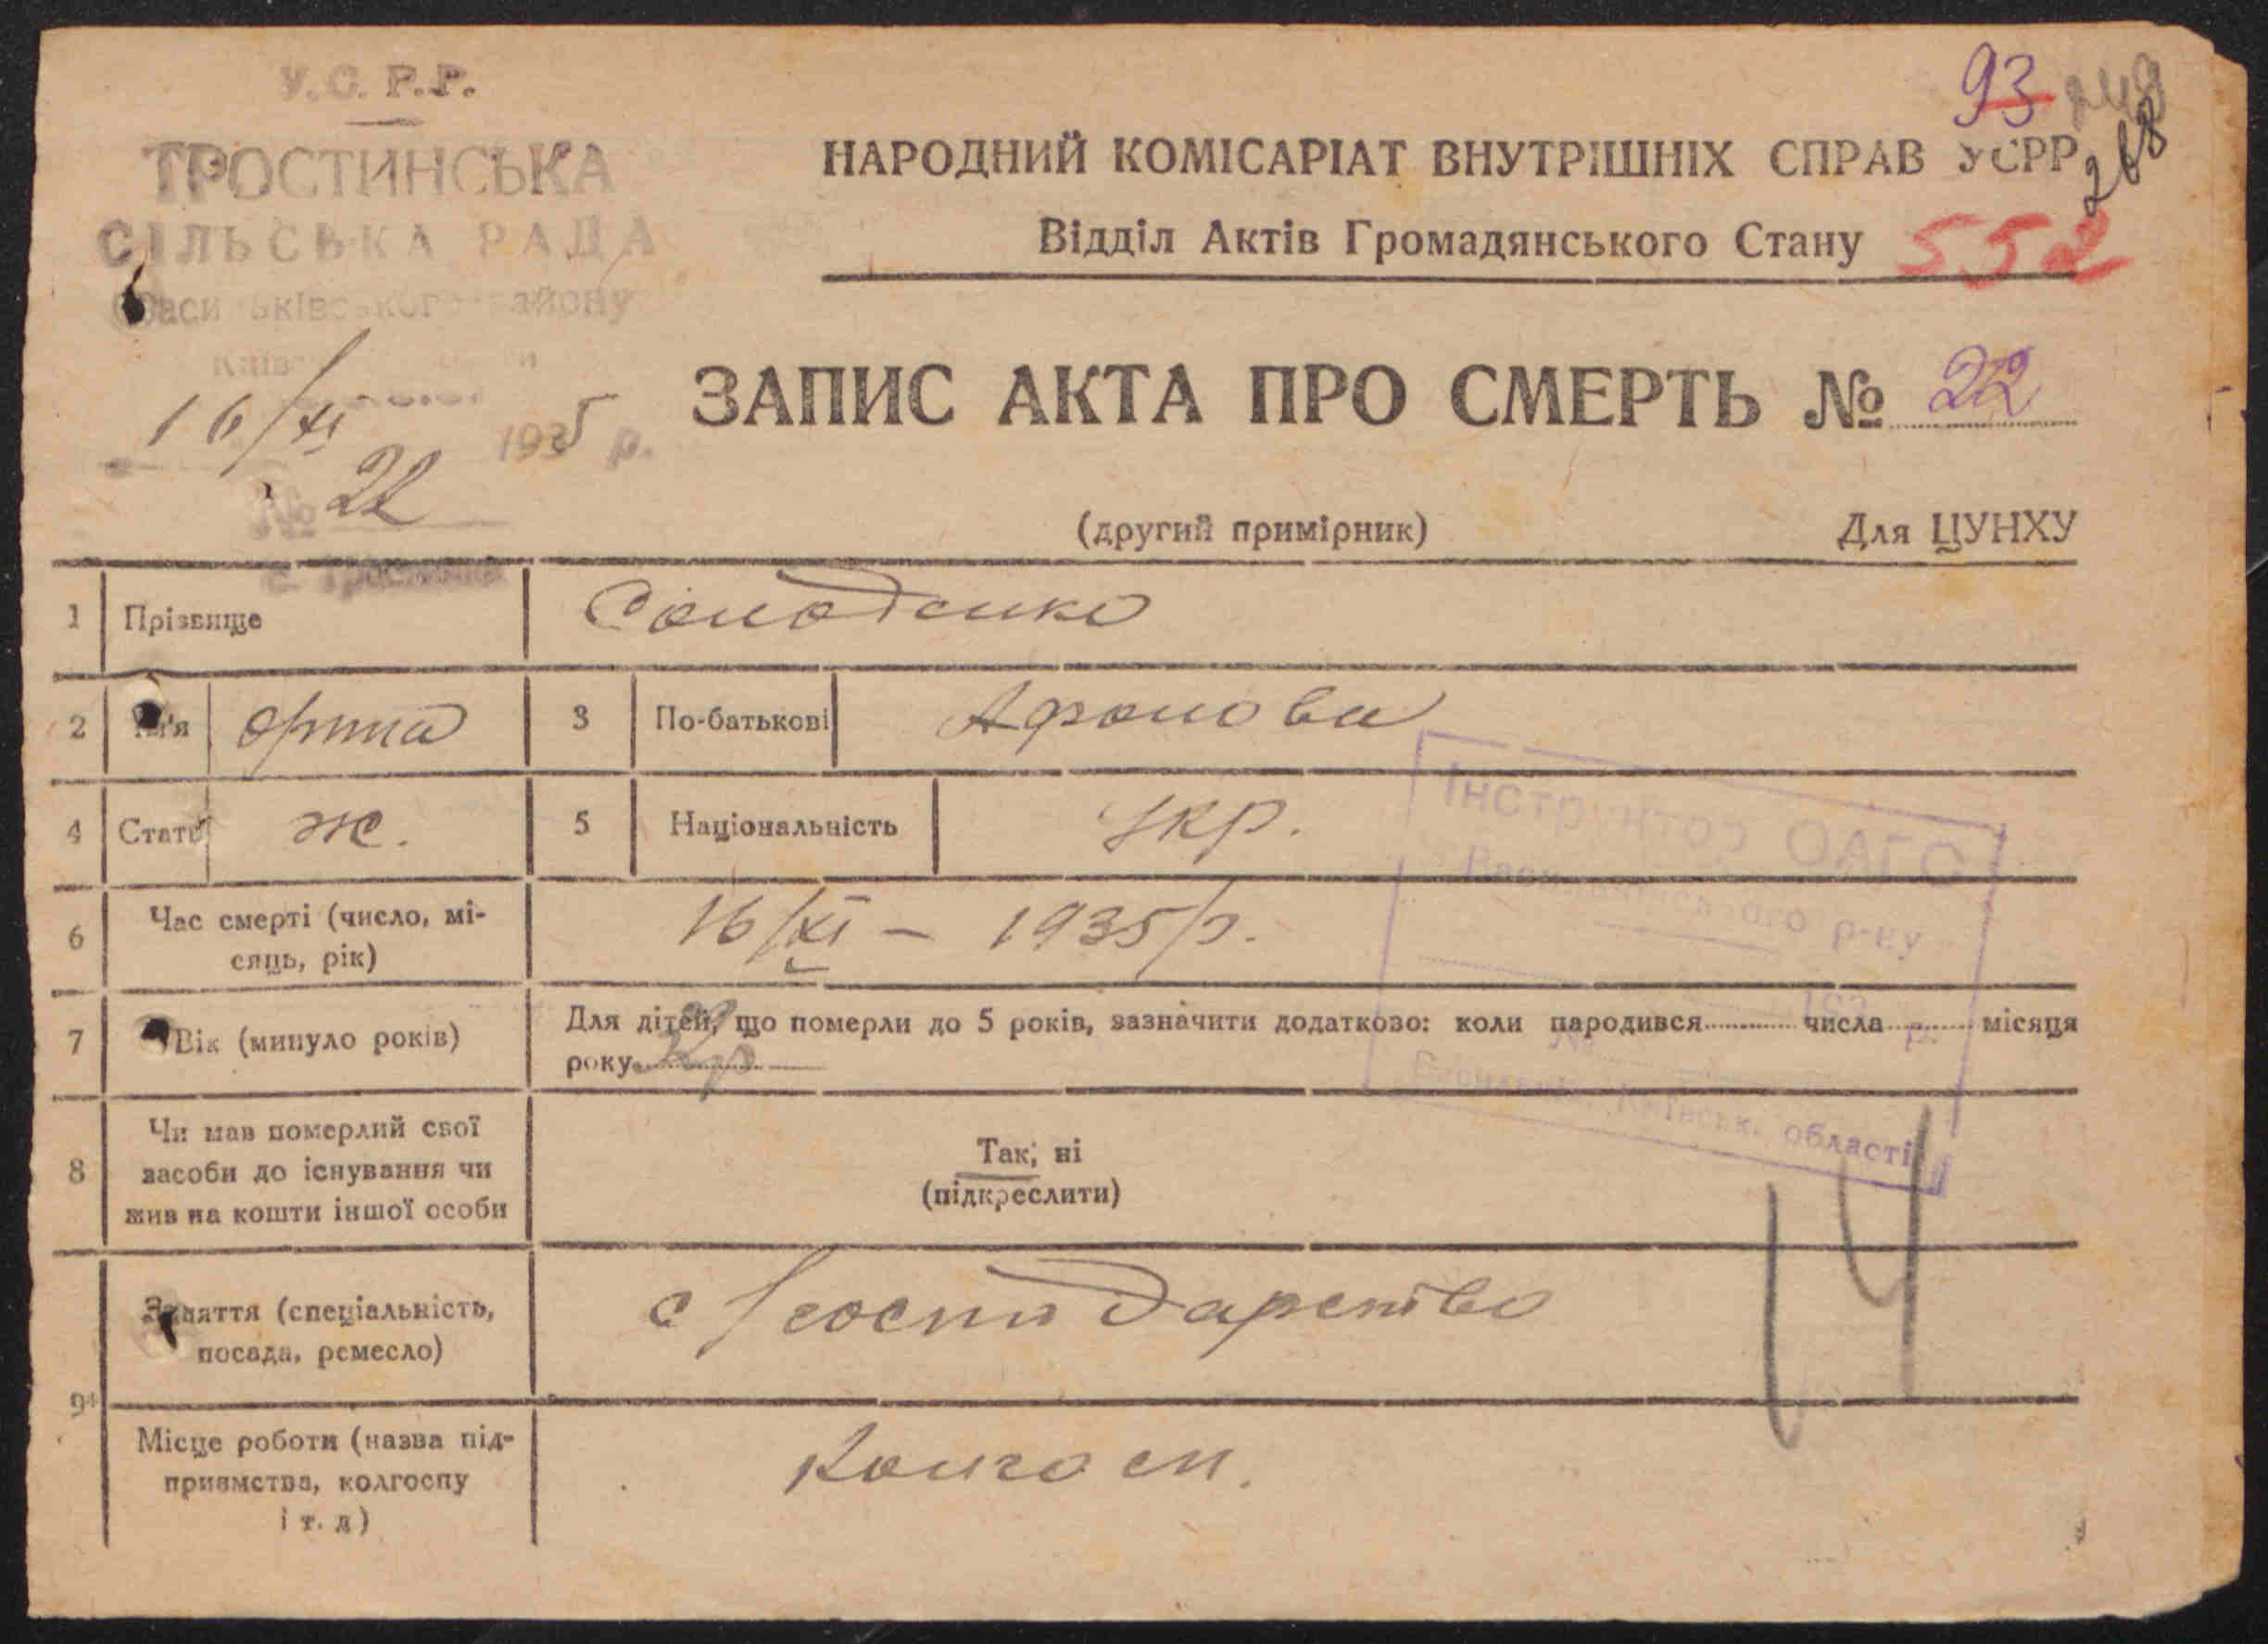 У.С.Р.Р.
ТРОСТИНСЬКА
СІЛЬСЬКА РАДА
Васильківського району
16/XI 1935 р.
№ 22
93
268
НАРОДНИЙ КОМІСАРІАТ ВНУТРІШНІХ СПРАВ УСРР
Відділ Актів Громадянського Стану 552
ЗАПИС АКТА ПРО СМЕРТЬ № 22
(другий примірник) Для ЦУНХУ
1 Прізвище Солоденко
2 Ім'я Орина 3 По-батькові
4 Стать ж. 5 Національність Укр.
6 Час смерті (число, мі-
сяць, рік) 16/XI – 1935 р.
7 Вік (минуло років) Для дітей, що померли до 5 років, зазначити додатково: коли народився числа місяця
року
8 Чи мав померлий свої
засоби до існування чи
жив на кошти іншої особи
Так; ні
(підкреслити)
9 Заняття (спеціальність,
посада, ремесло) с/господарство
Місце роботи (назва під-
приємства, колгоспу
і т. д) Колгосп.
Інструктор ОАГС
Васильківського р-ну
193 р.
№
Васильків, Київськ. області
14